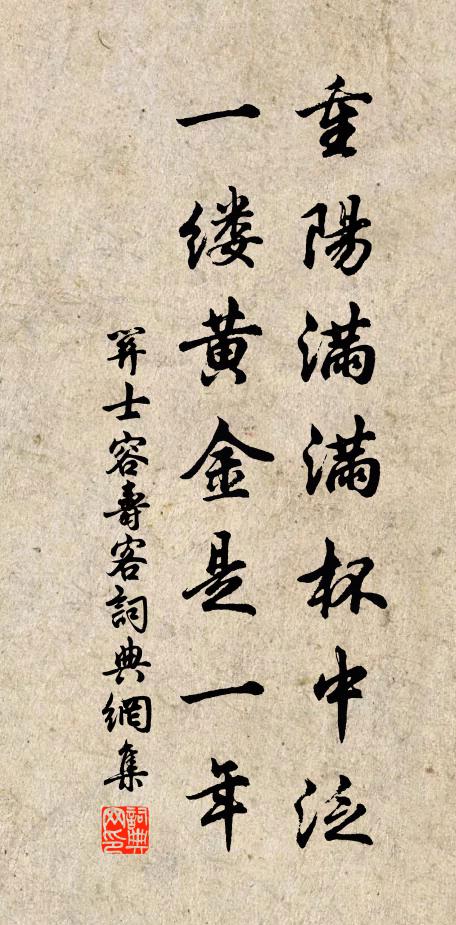 重陽滿滿杯中泛
一缕黃金是一年
羿士容壽客詞典網集
詞典
网印